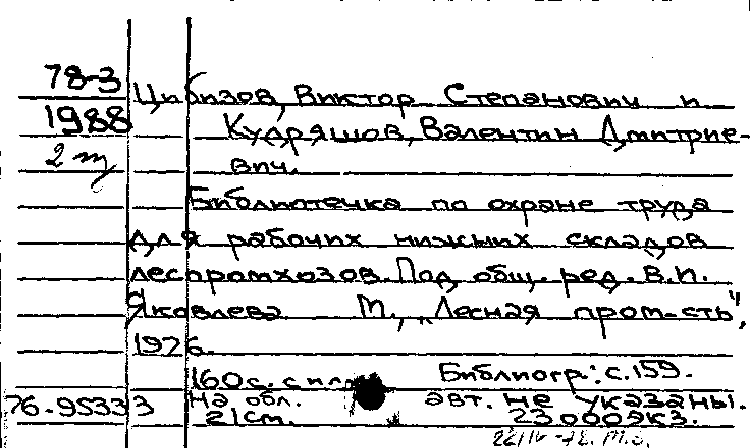 78-3
1988
2 т
Цибизов, Виктор Степанович и
Кудряшов, Валентин Дмитрие-
вич.
Библиотечка по охране труда
для рабочих нижних складов
леспромхозов. Под общ. ред. В.И.
Яковлева М., „Лесная пром-сть",
1976.
160 с. с илл. Библиогр.: с. 159.
76-95333 На обл. авт. не указаны.
21 см. 23 000 экз.